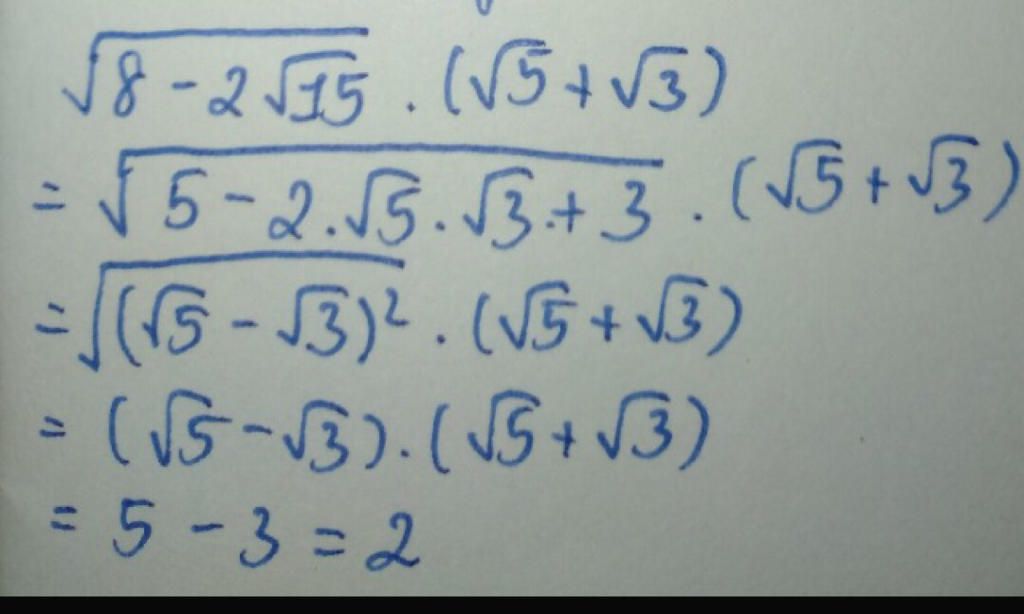 √(8 - 2√15) . (√5 + √3)
= √(5 - 2.√5.√3 + 3) . (√5 + √3)
= √((√5 - √3)²) . (√5 + √3)
= (√5 - √3).(√5 + √3)
= 5 - 3 = 2